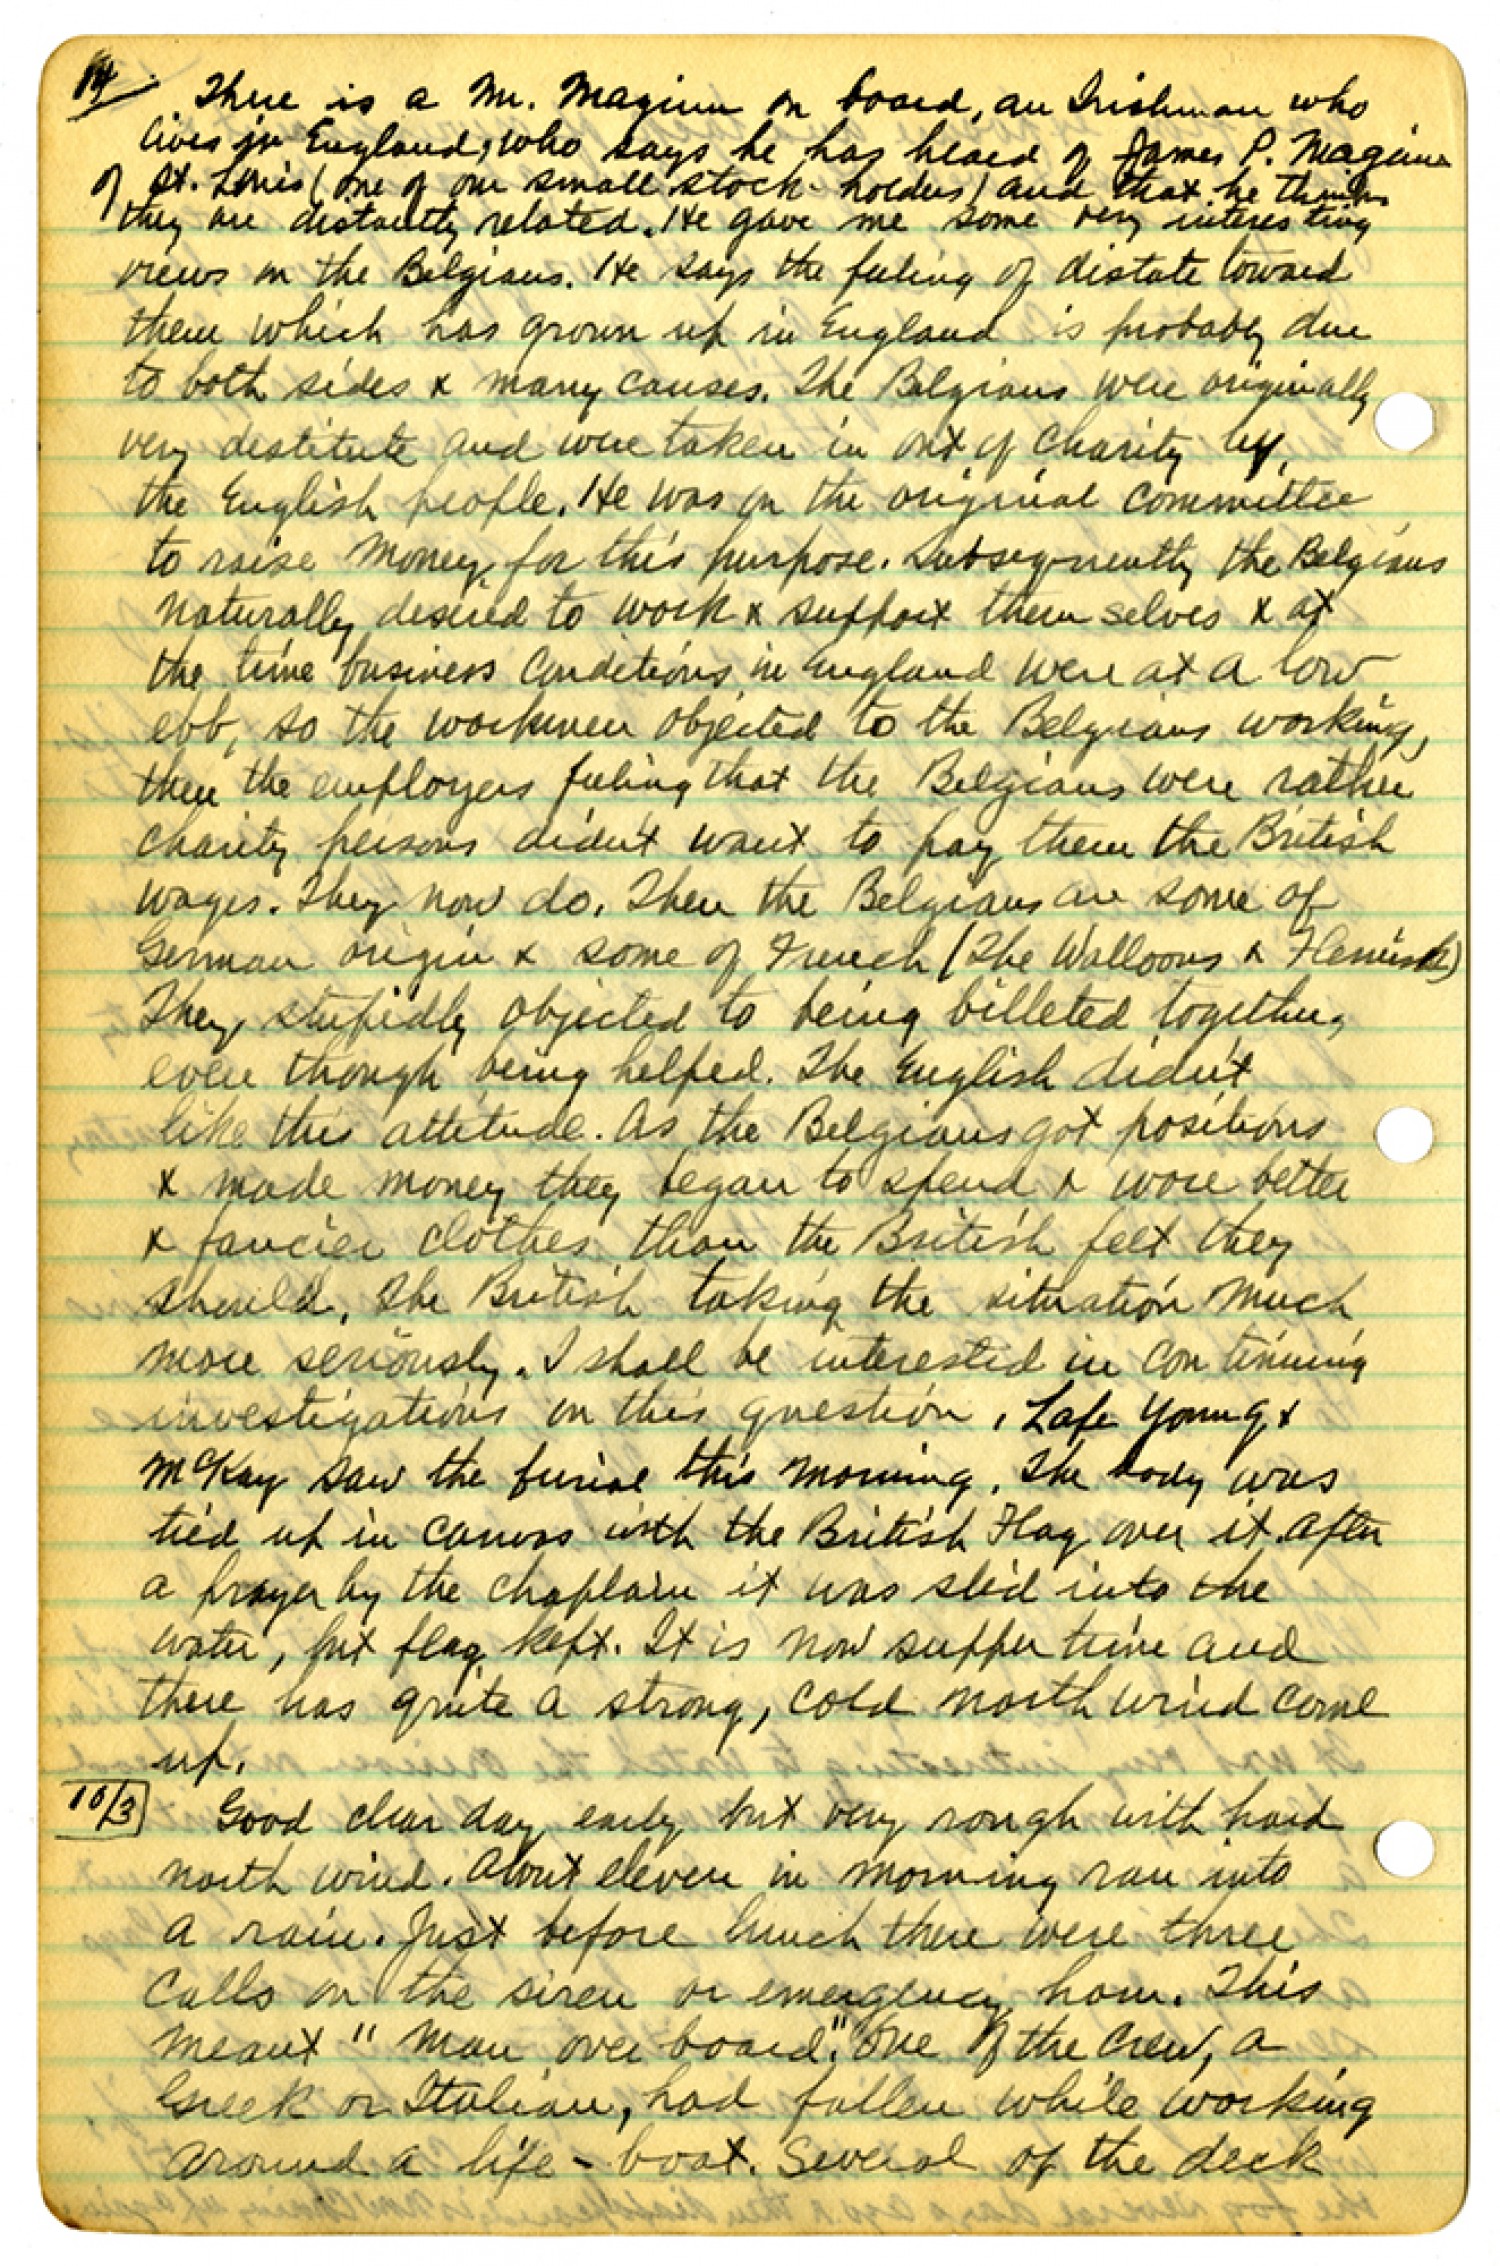 14
There is a Mr. Maginn on board, an Irishman who
lives in England, who says he has heard of James P. Maginn
of St. Louis (one of our small stock-holders) and that he thinks
they are distantly related. He gave me some very interesting
views on the Belgians. He says the feeling of distate toward
them which has grown up in England is probably due
to both sides & many causes. The Belgians were originally
very destitute and were taken in out of charity by
the English people. He was on the original committee
to raise money for this purpose. Subsequently the Belgians
naturally desired to work & support them selves & at
the time business conditions in England were at a low
ebb, so the workmen objected to the Belgians working,
then the employers feeling that the Belgians were rather
charity persons didn't want to pay them the British
wages. They now do. Then the Belgians are some of
German origin & some of French (The Walloons & Flemish)
They stupidly objected to being billeted together,
even though being helped. The English didn't
like this attitude. As the Belgians got positions
& made money they began to spend & wore better
& fancier clothes than the British felt they
should, the British taking the situation much
more seriously. I shall be interested in continuing
investigations on this question. Lafe Young &
McKay saw the burial this morning. The body was
tied up in canvas with the British Flag over it. After
a prayer by the chaplain it was slid into the
water, but flag kept. It is now supper time and
there has quite a strong, cold north wind come
up.
10/3 Good clear day early but very rough with hard
north wind. About eleven in morning ran into
a rain. Just before lunch there were three
calls on the siren or emergency horn. This
meant "Man over board". One of the crew, a
Greek or Italian, had fallen while working
around a life-boat. Several of the deck